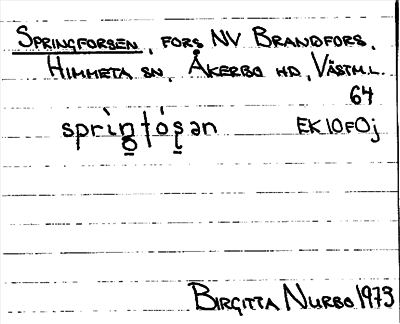 SPRINGFORSEN, FORS NV BRANDFORS,
HIMMETA SN, ÅKERBO HD, VÄSTM.L.
64
sprìn̥fóṣən EK 10F0j
BIRGITTA NURBO 1973